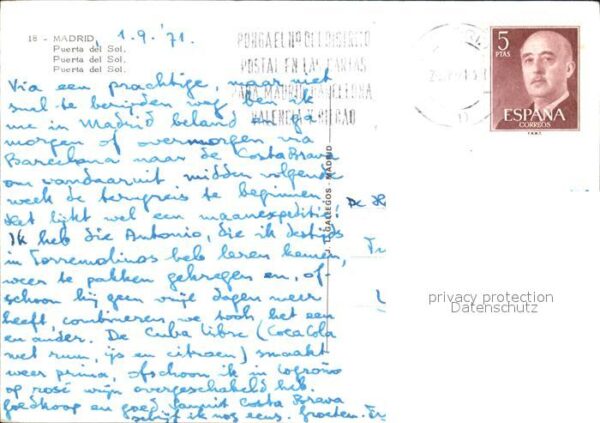 18 - MADRID
Puerta del Sol.
Puerta del Sol.
Puerta del Sol.
1.9.'71.
PONGA EL Nº DEL DISTRITO
POSTAL EN LAS CARTAS
PARA MADRID BARCELONA
VALENCIA Y BILBAO
5
PTAS
ESPAÑA
CORREOS
F.N.M.T.
Via een prachtige, maar niet
snel te berijden weg ben ik
nu in Madrid beland en ga
morgen of overmorgen via
Barcelona naar de Costa Brava
om vandaaruit midden volgende
week de terugreis te beginnen.
Het lijkt wel een maanexpeditie! De
Ik heb die Antonio, die ik destijds
in Torremolinos heb leren kennen,
weer te pakken gekregen en, of-
schoon hij geen vrije dagen meer
heeft, combineren we toch het een
en ander. De Cuba libre (CocaCola
met rum, ijs en citroen) smaakt
weer prima, ofschoon ik in Logroño
op rosé wijn overgeschakeld heb.
Goedkoop en goed. Vanuit Costa Brava
schrijf ik nog eens. Groeten.
J. L. GALLEGOS - MADRID
privacy protection
Datenschutz